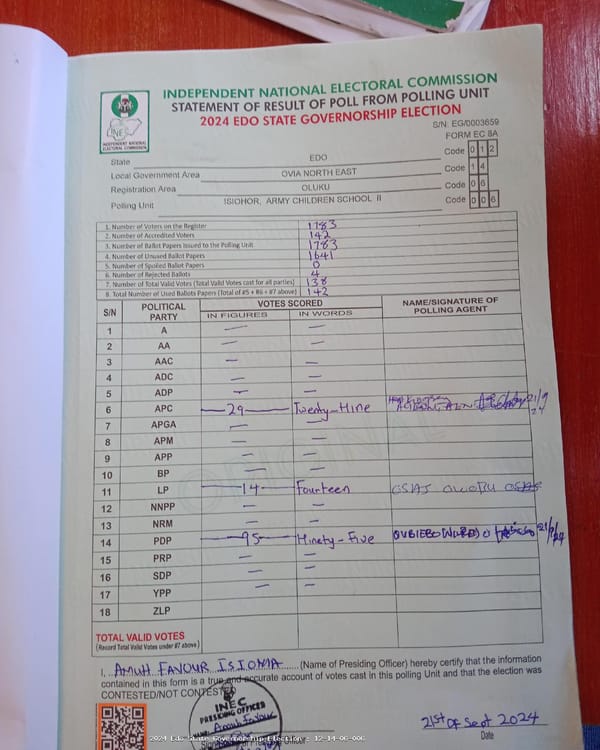 INDEPENDENT NATIONAL ELECTORAL COMMISSION
STATEMENT OF RESULT OF POLL FROM POLLING UNIT
2024 EDO STATE GOVERNORSHIP ELECTION
INEC
INDEPENDENT NATIONAL
ELECTORAL COMMISSION
S/N: EG/0003659
FORM EC 8A
State EDO Code 0 1 2
Local Government Area OVIA NORTH EAST Code 1 4
Registration Area OLUKU Code 0 6
Polling Unit ISIOHOR, ARMY CHILDREN SCHOOL II Code 0 0 6
1. Number of Voters on the Register 1783
2. Number of Accredited Voters 142
3. Number of Ballot Papers Issued to the Polling Unit 1783
4. Number of Unused Ballot Papers 1641
5. Number of Spoiled Ballot Papers 0
6. Number of Rejected Ballots 4
7. Number of Total Valid Votes (Total Valid Votes cast for all parties) 138
8. Total Number of Used Ballots Papers (Total of #5 + #6 + #7 above) 142
S/N POLITICAL PARTY VOTES SCORED NAME/SIGNATURE OF POLLING AGENT
IN FIGURES IN WORDS
1 A — —
2 AA — —
3 AAC — —
4 ADC — —
5 ADP — —
6 APC —29— Twenty-Nine
7 APGA — —
8 APM — —
9 APP — —
10 BP — —
11 LP —14— Fourteen
12 NNPP — —
13 NRM — —
14 PDP —95— Ninety-Five
15 PRP — —
16 SDP — —
17 YPP — —
18 ZLP
ORIGINAL
TOTAL VALID VOTES
(Record Total Valid Votes under #7 above)
I, AMUH FAVOUR ISIOMA (Name of Presiding Officer) hereby certify that the information
contained in this form is a true and accurate account of votes cast in this polling Unit and that the election was
CONTESTED/NOT CONTESTED
INEC
PRESIDING OFFICER
Amuh Favour
21st Of Sept 2024
Date
2024 Edo State Governorship Election - 12-14-06-006